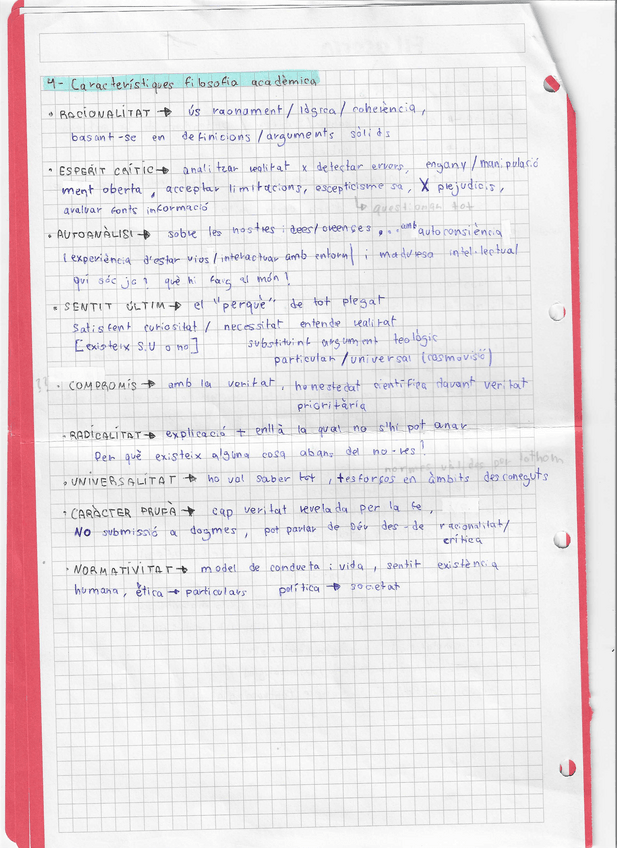 4- Característiques filosofia acadèmica
• RACIONALITAT → ús raonament / lògica / coherència,
basant-se en definicions / arguments sòlids
• ESPERIT CRÍTIC → analitzar realitat x detectar errors, engany / manipulació
ment oberta, acceptar limitacions, escepticisme sa, X prejudicis,
↳ questionar tot
avaluar fonts informació
• AUTOANÀLISI → sobre les nostres idees/creenses ... amb autoconsiència
(experiència d'estar vius / interactuar amb entorn) i maduresa intel·lectual
qui sóc jo? què hi faig al món!
• SENTIT ÚLTIM → el "perquè" de tot plegat
Satisfent curiositat / necessitat entende realitat
[existeix S.U o no] substituint argument teològic
particular / universal (cosmovisió)
• COMPROMÍS → amb la veritat, honestedat científica davant veritat
prioritària
• RADICALITAT → explicació + enllà la qual no s'hi pot anar
Per què existeix alguna cosa abans del no-res!
• UNIVERSALITAT → ho vol saber tot, +esforços en àmbits desconeguts
• CARÀCTER PRUFÀ → cap veritat revelada per la fe,
NO submissió a dogmes, pot parlar de Déu des-de racionalitat/
crítica
• NORMATIVITAT → model de conducta i vida, sentit existència
humana, ètica → particulars política → societat